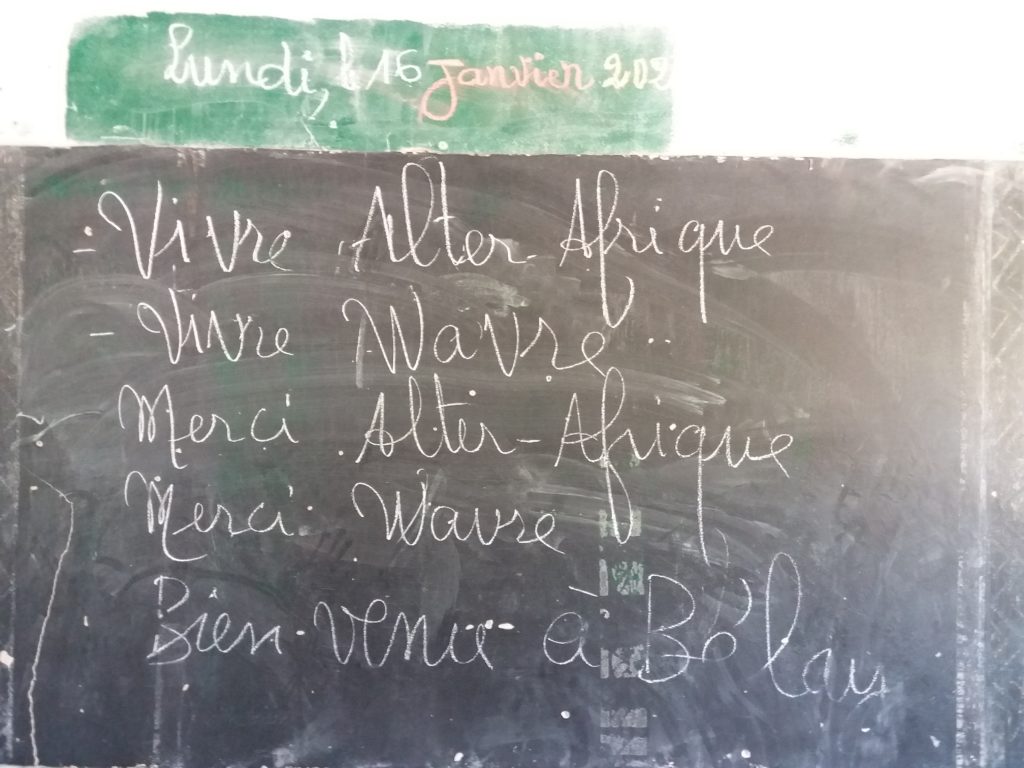 Lundi, le 16 janvier 202
- Vivre Alter-Afrique
- Vivre Wavre
Merci Alter-Afrique
Merci Wavre
Bien venue à Bélay